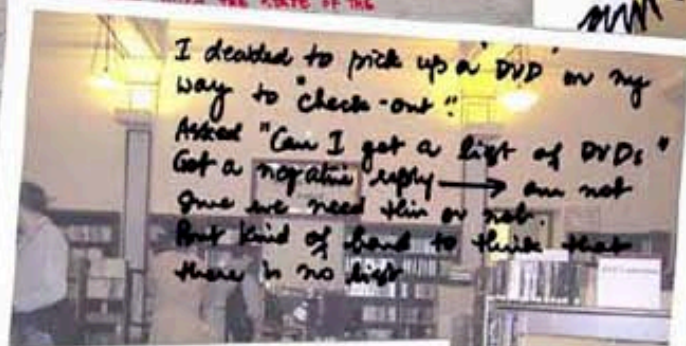 THE STATE OF THE
I decided to pick up a "DVD" on my
way to "check-out".
Asked "Can I get a list of DVDs"
Got a negative reply → am not
sure we need this or not.
But kind of hard to think that
there is no list